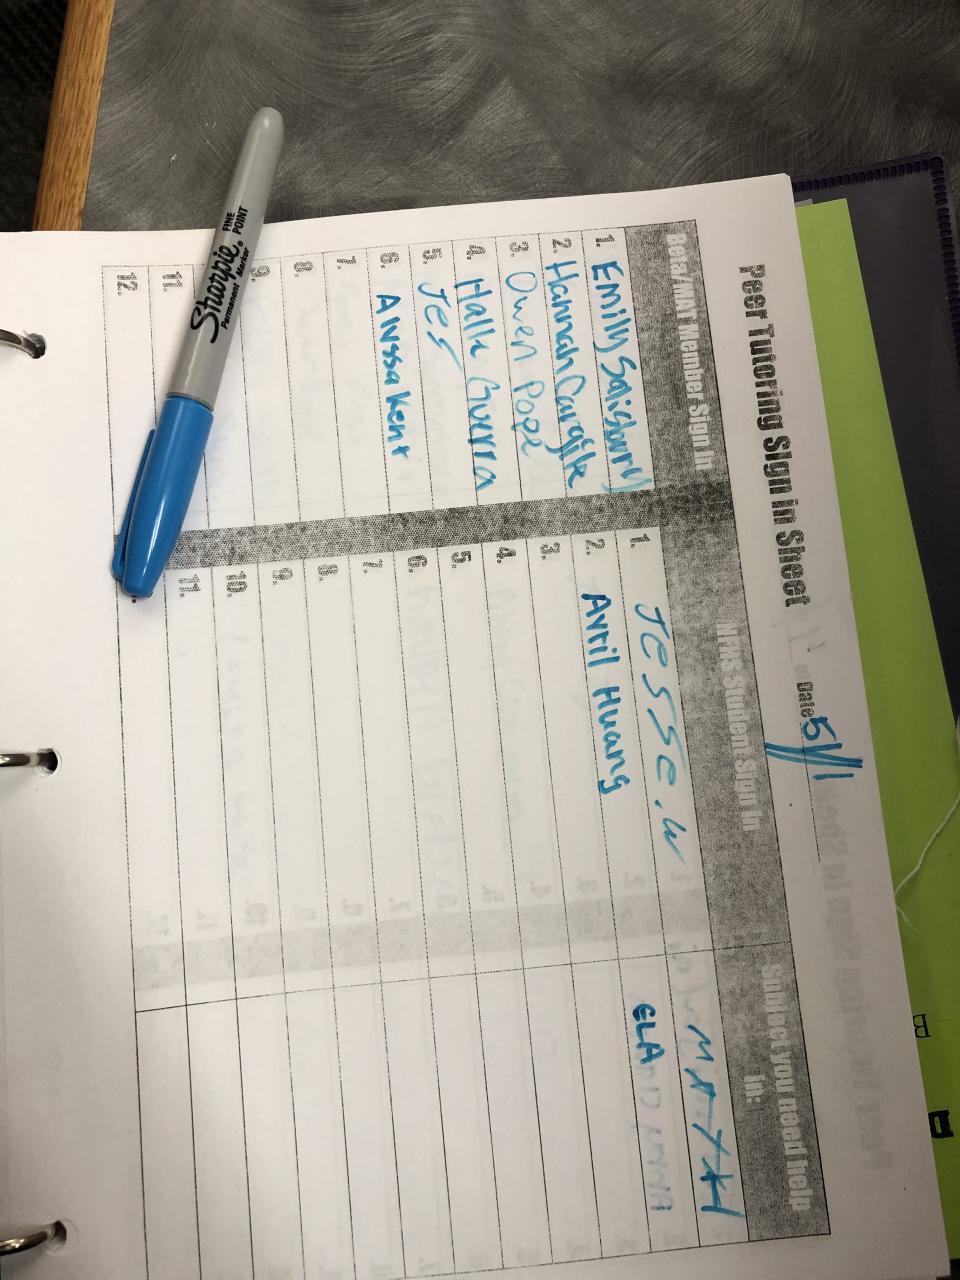 Peer Tutoring Sign in Sheet
Date 5/1/1
Beta/MAT Member Sign In
NHS Student Sign In
Subject you need help in:
1. Emily Salisbury
2. Hannah Cargile
3. Owen Pope
4. Halle Guerra
5. Jes
6. Alyssa Kent
7.
8.
9.
11.
12.
1. Jesse.W
2. Avril Huang
3.
4.
5.
6.
7.
8.
9.
10.
11.
MATH
ELA
Sharpie
FINE POINT
Permanent Marker
B